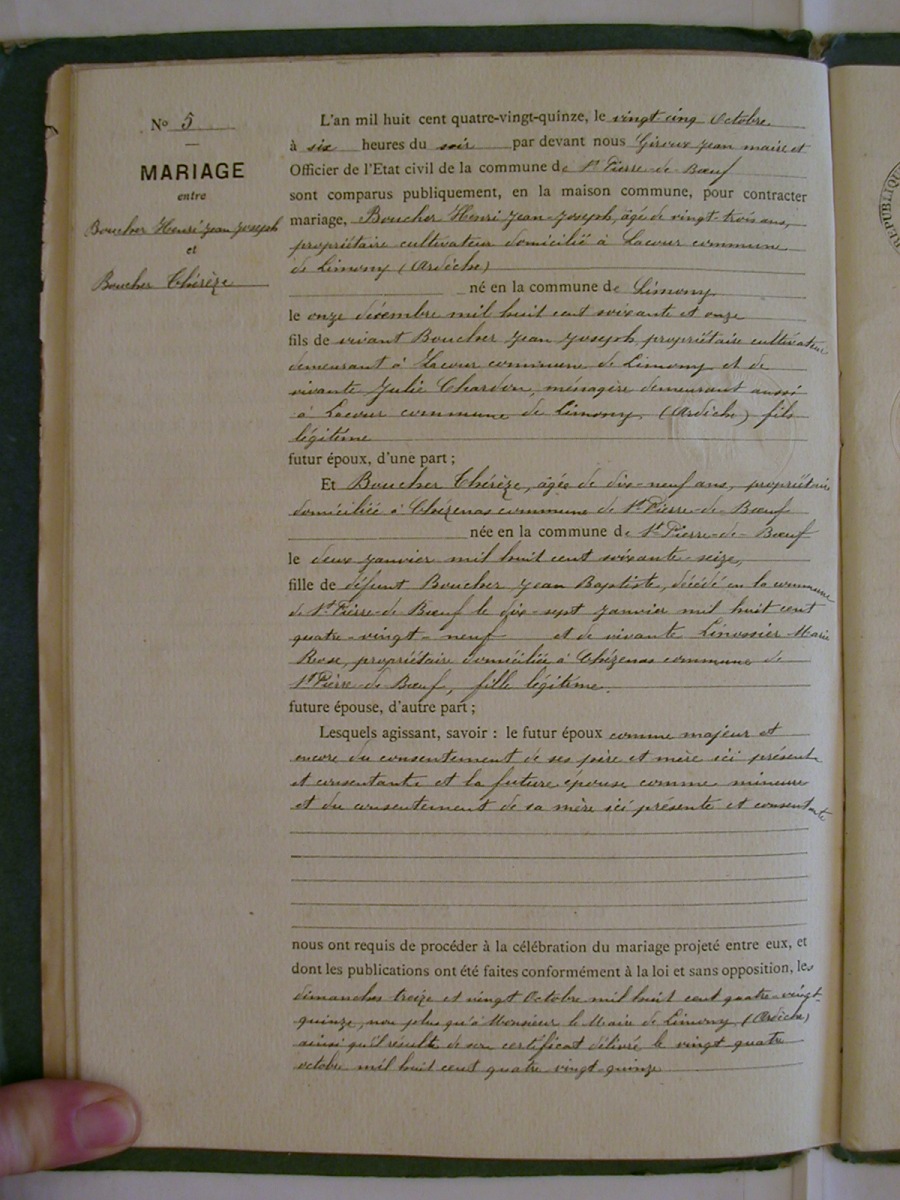 No 5
MARIAGE
entre
Boucher Henri Jean Joseph
et
Boucher Thérèze
L'an mil huit cent quatre-vingt-quinze, le vingt cinq Octobre
à six heures du soir par devant nous Giroux Jean maire et
Officier de l'Etat civil de la commune de St Pierre-de-Bœuf
sont comparus publiquement, en la maison commune, pour contracter
mariage, Boucher Henri Jean-Joseph, âgé de vingt-trois ans,
propriétaire cultivateur domicilié à Lacour commune
de Limony (Ardèche)
né en la commune de Limony
le onze décembre mil huit cent soixante et onze
fils de vivant Boucher Jean Joseph propriétaire cultivateur
demeurant à Lacour commune de Limony et de
vivante Julie Chardon, ménagère demeurant aussi
à Lacour commune de Limony, (Ardèche) fils
légitime
futur époux, d'une part ;
Et Boucher Thérèze, âgée de dix-neuf ans, propriétaire
domiciliée à Chézenas commune de St Pierre-de-Bœuf
née en la commune de St Pierre-de-Bœuf
le deux janvier mil huit cent soixante-seize,
fille de défunt Boucher Jean Baptiste, décédé en la commune
de St Pierre-de Bœuf le dix-sept janvier mil huit cent
quatre-vingt-neuf et de vivante Linossier Marie
Rose, propriétaire domiciliée à Chézenas commune de
St Pierre-de Bœuf, fille légitime.
future épouse, d'autre part ;
Lesquels agissant, savoir : le futur époux comme majeur et
encore du consentement de ses père et mère ici présents
et consentants et la future épouse comme mineure
et du consentement de sa mère ici présente et consentante
nous ont requis de procéder à la célébration du mariage projeté entre eux, et
dont les publications ont été faites conformément à la loi et sans opposition, les
dimanches treize et vingt Octobre mil huit cent quatre-vingt-
quinze, non plus qu'à Monsieur le Maire de Limony (Ardèche)
ainsi qu'il résulte de son certificat délivré le vingt quatre
octobre mil huit cent quatre vingt quinze
RÉPUBLIQUE